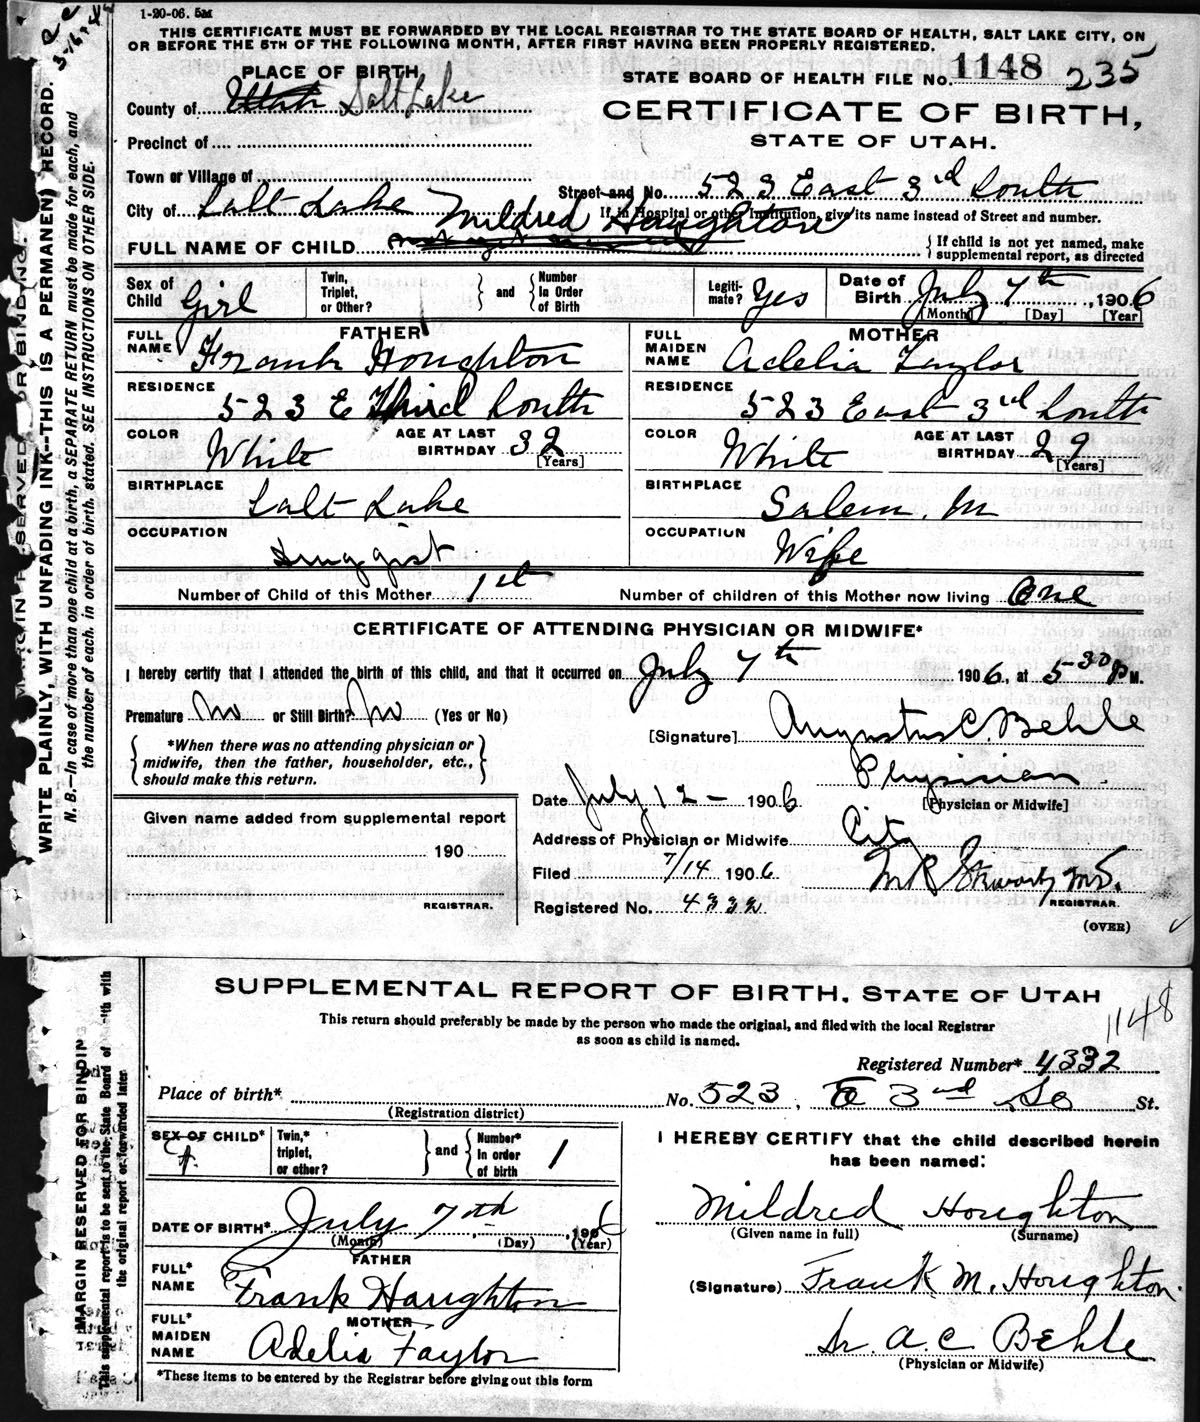 1-20-06. 5M
THIS CERTIFICATE MUST BE FORWARDED BY THE LOCAL REGISTRAR TO THE STATE BOARD OF HEALTH, SALT LAKE CITY, ON
OR BEFORE THE 5TH OF THE FOLLOWING MONTH, AFTER FIRST HAVING BEEN PROPERLY REGISTERED.
PLACE OF BIRTH
STATE BOARD OF HEALTH FILE No. 1148 235
County of Utah Salt Lake
CERTIFICATE OF BIRTH,
STATE OF UTAH.
Precinct of
Town or Village of
Street and No. 523 East 3rd South
City of Salt Lake
If in Hospital or other Institution, give its name instead of Street and number.
FULL NAME OF CHILD Mildred Houghton
If child is not yet named, make supplemental report, as directed
Sex of Child Girl
Twin, Triplet, or Other? and Number In Order of Birth
Legitimate? Yes
Date of Birth July 7th, 1906
[Month] [Day] [Year]
FATHER
FULL NAME Frank Houghton
RESIDENCE 523 E Third South
COLOR White AGE AT LAST BIRTHDAY 32 [Years]
BIRTHPLACE Salt Lake
OCCUPATION Druggist
MOTHER
FULL MAIDEN NAME Adelia Taylor
RESIDENCE 523 East 3rd South
COLOR White AGE AT LAST BIRTHDAY 29 [Years]
BIRTHPLACE Salem, M
OCCUPATION Wife
Number of Child of this Mother 1st Number of children of this Mother now living One
CERTIFICATE OF ATTENDING PHYSICIAN OR MIDWIFE*
I hereby certify that I attended the birth of this child, and that it occurred on July 7th 1906, at 5 30 P M.
Premature No or Still Birth? No (Yes or No)
[Signature] Augustus C. Behle
*When there was no attending physician or
midwife, then the father, householder, etc.,
should make this return.
Physician
[Physician or Midwife]
Date July 12 - 1906
Given name added from supplemental report
190
REGISTRAR.
Address of Physician or Midwife City
Filed 7/14 1906
REGISTRAR.
Registered No. 4332
(OVER)
MARGIN RESERVED FOR BINDING.
WRITE PLAINLY, WITH UNFADING INK--THIS IS A PERMANENT RECORD.
N. B.--In case of more than one child at a birth, a SEPARATE RETURN must be made for each, and
the number of each, in order of birth, stated. SEE INSTRUCTIONS ON OTHER SIDE.
SUPPLEMENTAL REPORT OF BIRTH, STATE OF UTAH
1148
This return should preferably be made by the person who made the original, and filed with the local Registrar
as soon as child is named.
Registered Number* 4332
Place of birth* No. 523, E 3rd So St.
(Registration district)
SEX OF CHILD* F.
Twin,* triplet, or other? and Number* In order of birth 1
I HEREBY CERTIFY that the child described herein
has been named:
Mildred Houghton
(Given name in full) (Surname)
DATE OF BIRTH* July 7th, 1906
(Month) (Day) (Year)
FATHER
FULL* NAME Frank Houghton
(Signature) Frank M. Houghton.
MOTHER
FULL* MAIDEN NAME Adelia Taylor
Dr. A. C. Behle
(Physician or Midwife)
*These items to be entered by the Registrar before giving out this form
MARGIN RESERVED FOR BINDIN
This supplemental report is to be sent to the State Board of with
the original report or forwarded later.